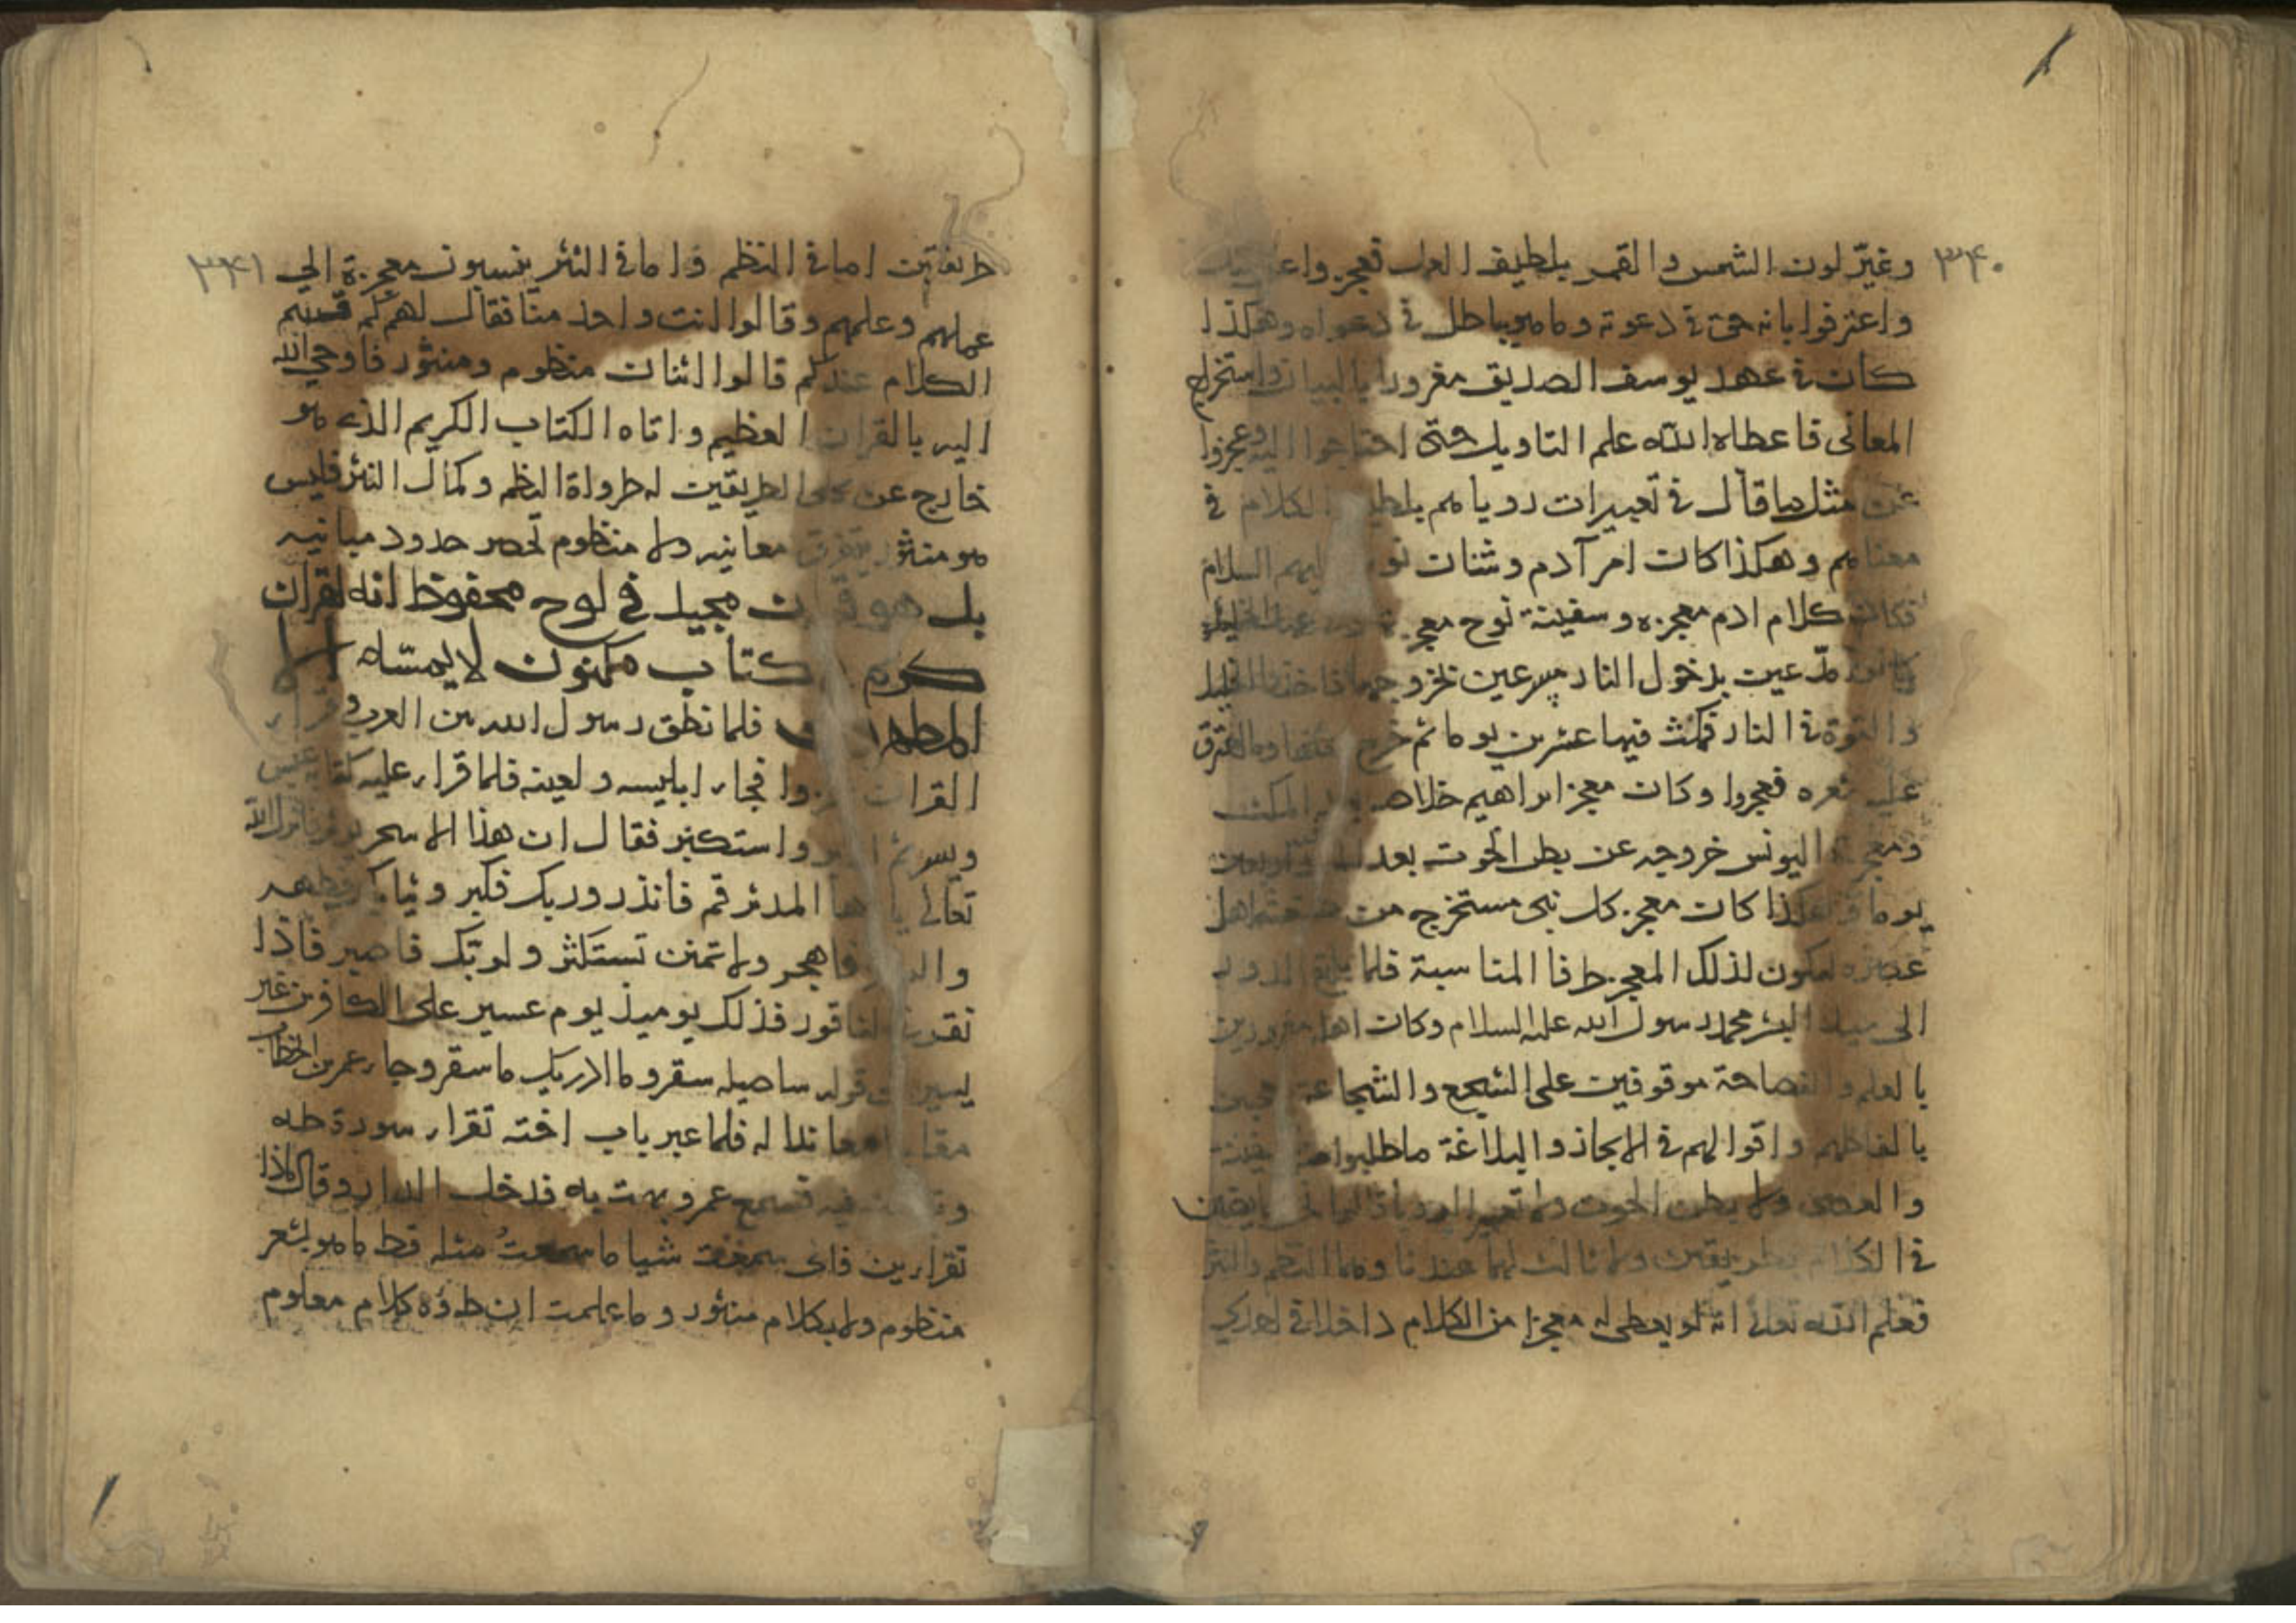 ٣٤٠
وغيّر لون الشمس والقمر بلطيف العلم فعجزوا عن ذلك
واعترفوا بانه حق في دعوته وما هو بباطل في دعواه وهكذا
كان في عهد يوسف الصديق مغرورا بالبيان واستخراج
المعاني فاعطاه الله علم التاويل حتى احتاجوا اليه وعجزوا
عن مثل ما قال في تعبيرات روياهم بلطيف الكلام في
معناهم وهكذا كان امر آدم وشان نوح عليهم السلام
فكان كلام ادم معجزه وسفينة نوح معجزته
مدعين بدخول النار مسرعين بخروجها
في النار فمكث فيها عشرين يوما ثم خرج منها وما احترق
عليه شعره فعجزوا وكان معجز ابراهيم خلاصه
ومعجزة اليونس خروجه عن بطن الحوت بعد اربعين
يوما وهكذا كان معجز كل نبي مستخرج من اهل
عصره ليكون لذلك المعجز طرفا المناسبة فلما
الى سيد البشر محمد رسول الله عليه السلام وكان اهل مغرورين
بالعلم والفصاحة موقوفين على السجع والشجاعة
بالفاظهم واقوالهم في الايجاز والبلاغة ما طلبوا
والعصى ولا بطن الحوت ولا تعبير الرويا
في الكلام بطريقين ولا ثالث لهما عندنا وهما النظم والنثر
فعلم الله تعالى انه لو يعطى له معجزا من الكلام داخلا في احدي
٣٤١
طريقين اما في النظم واما في النثر ينسبون معجزة الي
عملهم وعلمهم وقالوا انت واحد منا فقال لهم كم قسم
الكلام عندكم قالوا اثنان منظوم ومنثور فاوحى الله
اليه بالقران العظيم واتاه الكتاب الكريم الذي هو
خارج عن الطريقين له طراوة النظم وكمال النثر فليس
هو منثور يتفرق معانيه ولا منظوم تحصر حدود مبانيه
بل هو قران مجيد في لوح محفوظ انه لقران
كريم كتاب مكنون لا يمسه الا
المطهرون فلما نطق رسول الله بين العرب وقراء
القران فجاء ابليسه ولعينه فلما قراء عليه لقد عبس
وبسر ثم ادبر واستكبر فقال ان هذا الا سحر يوثر فانزل الله
تعالى يا ايها المدثر قم فانذر وربك فكبر وثيابك فطهر
والرجز فاهجر ولا تمنن تستكثر ولربك فاصبر فاذا
نقر في الناقور فذلك يوميذ يوم عسير على الكافرين غير
يسير قوله ساصليه سقر وما ادريك ما سقر وجاء عمر بن الخطاب
معاندا له فلما عبر باب اخته تقراء سورة طه
فسمع عمر وبهت به فدخل الدار وقال ماذا
تقراين فاني سمعت شيا ما سمعت مثله قط ما هو بشعر
منظوم ولا بكلام منثور وما علمت ان طه كلام معلوم